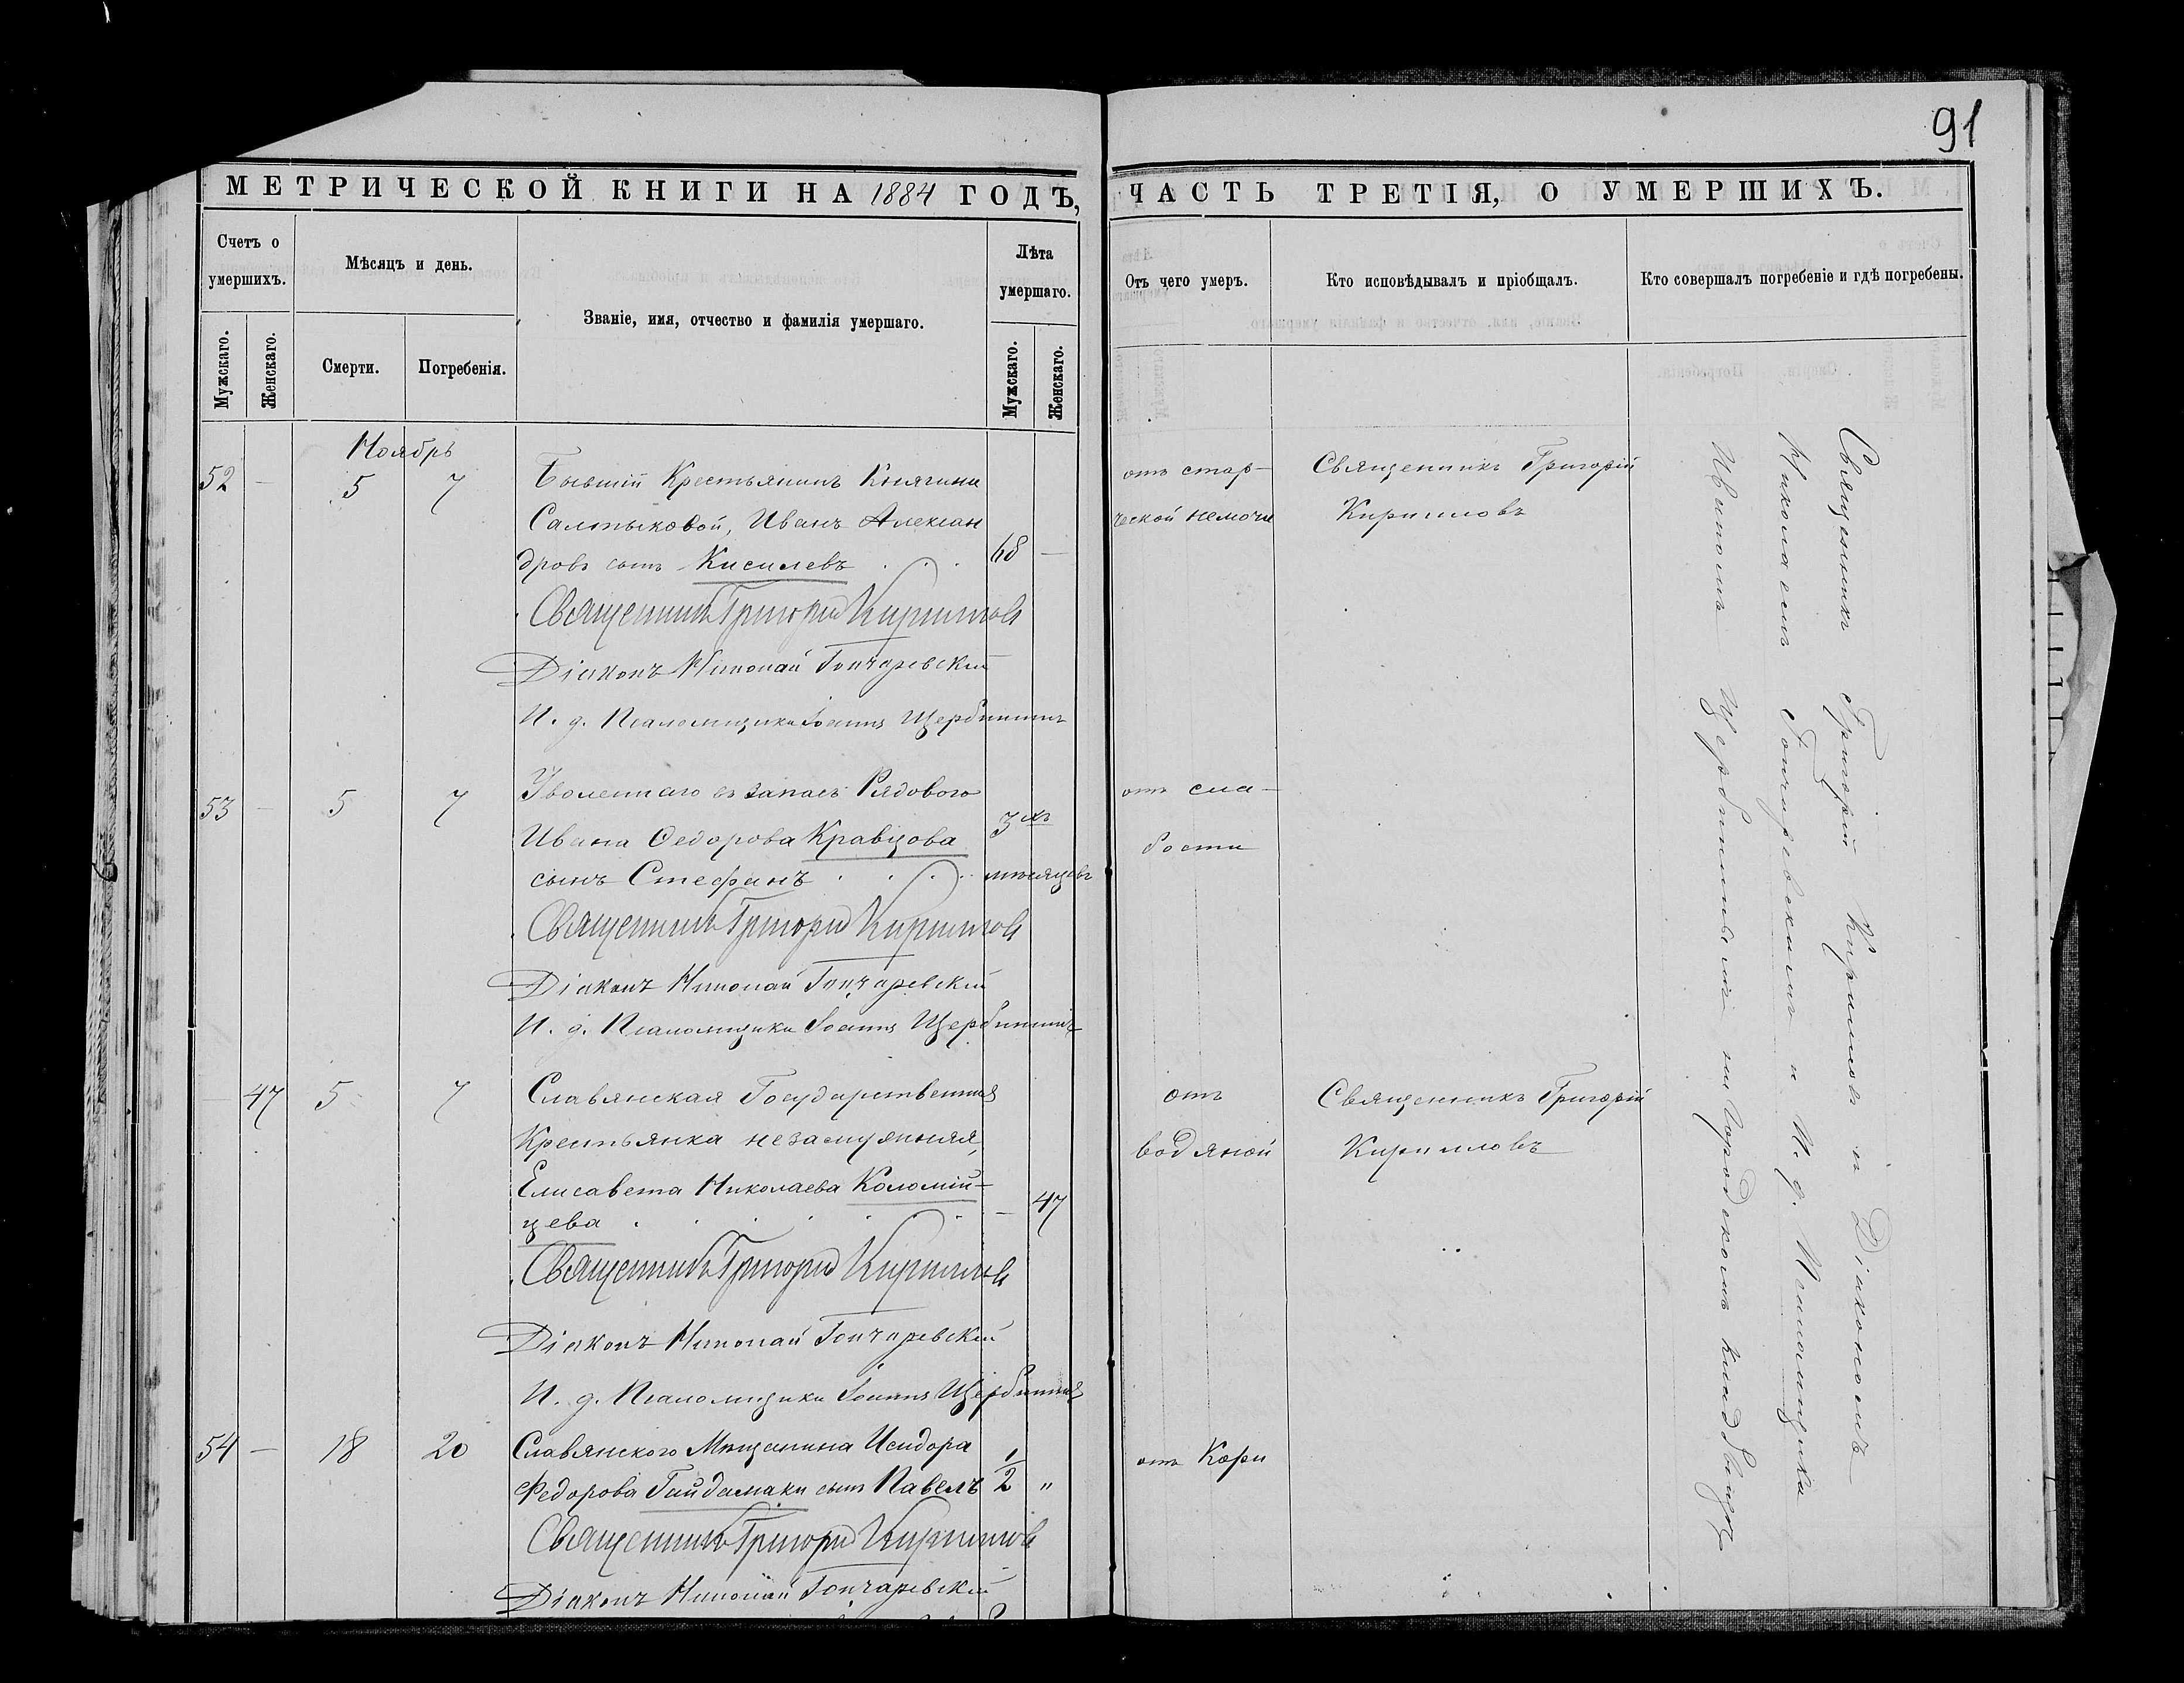 91
МЕТРИЧЕСКОЙ КНИГИ НА 1884 ГОДЪ,
ЧАСТЬ ТРЕТІЯ, О УМЕРШИХЪ.
Счетъ о умершихъ.
Мужскаго.
Женскаго.
Мѣсяцъ и день.
Смерти.
Погребенія.
Званіе, имя, отчество и фамилія умершаго.
Лѣта умершаго.
Мужскаго.
Женскаго.
Отъ чего умеръ.
Кто исповѣдывалъ и пріобщалъ.
Кто совершалъ погребеніе и гдѣ погребены.
Ноябрь
52 — 5 7
Бывшій Крестьянинъ Княгини
Салтыковой, Иванъ Алексан
дровъ сынъ Киселевъ 68 —
Священникъ Григорій Кирилловъ
Діаконъ Николай Гончаревскій
И. д. Псаломщика Іоаннъ Щербининъ
отъ стар-
ческой немочи
Священникъ Григорій
Кирилловъ
53 — 5 7
Уволеннаго въ запасъ Рядового
Ивана Ѳедорова Кравцова
сынъ Стефанъ
3хъ
мѣсяцевъ
Священникъ Григорій Кирилловъ
Діаконъ Николай Гончаревскій
И. д. Псаломщика Іоаннъ Щербининъ
отъ сла-
бости
— 47 5 7
Славянская Государственная
Крестьянка незамужняя,
Елисавета Николаева Коломій-
цева — 47
Священникъ Григорій Кирилловъ
Діаконъ Николай Гончаревскій
И. д. Псаломщика Іоаннъ Щербининъ
отъ
водяной
Священникъ Григорій
Кирилловъ
54 — 18 20
Славянского Мѣщанина Исидора
Федорова Гайдамаки сынъ Павелъ 1/2 "
Священникъ Григорій Кирилловъ
Діаконъ Николай Гончаревскій
отъ Кори
Священникъ Григорій Кирилловъ и Діакономъ
Николаемъ Гончаревскимъ и И. д. Псаломщика
Щербининымъ на Городскомъ кладбищѣ